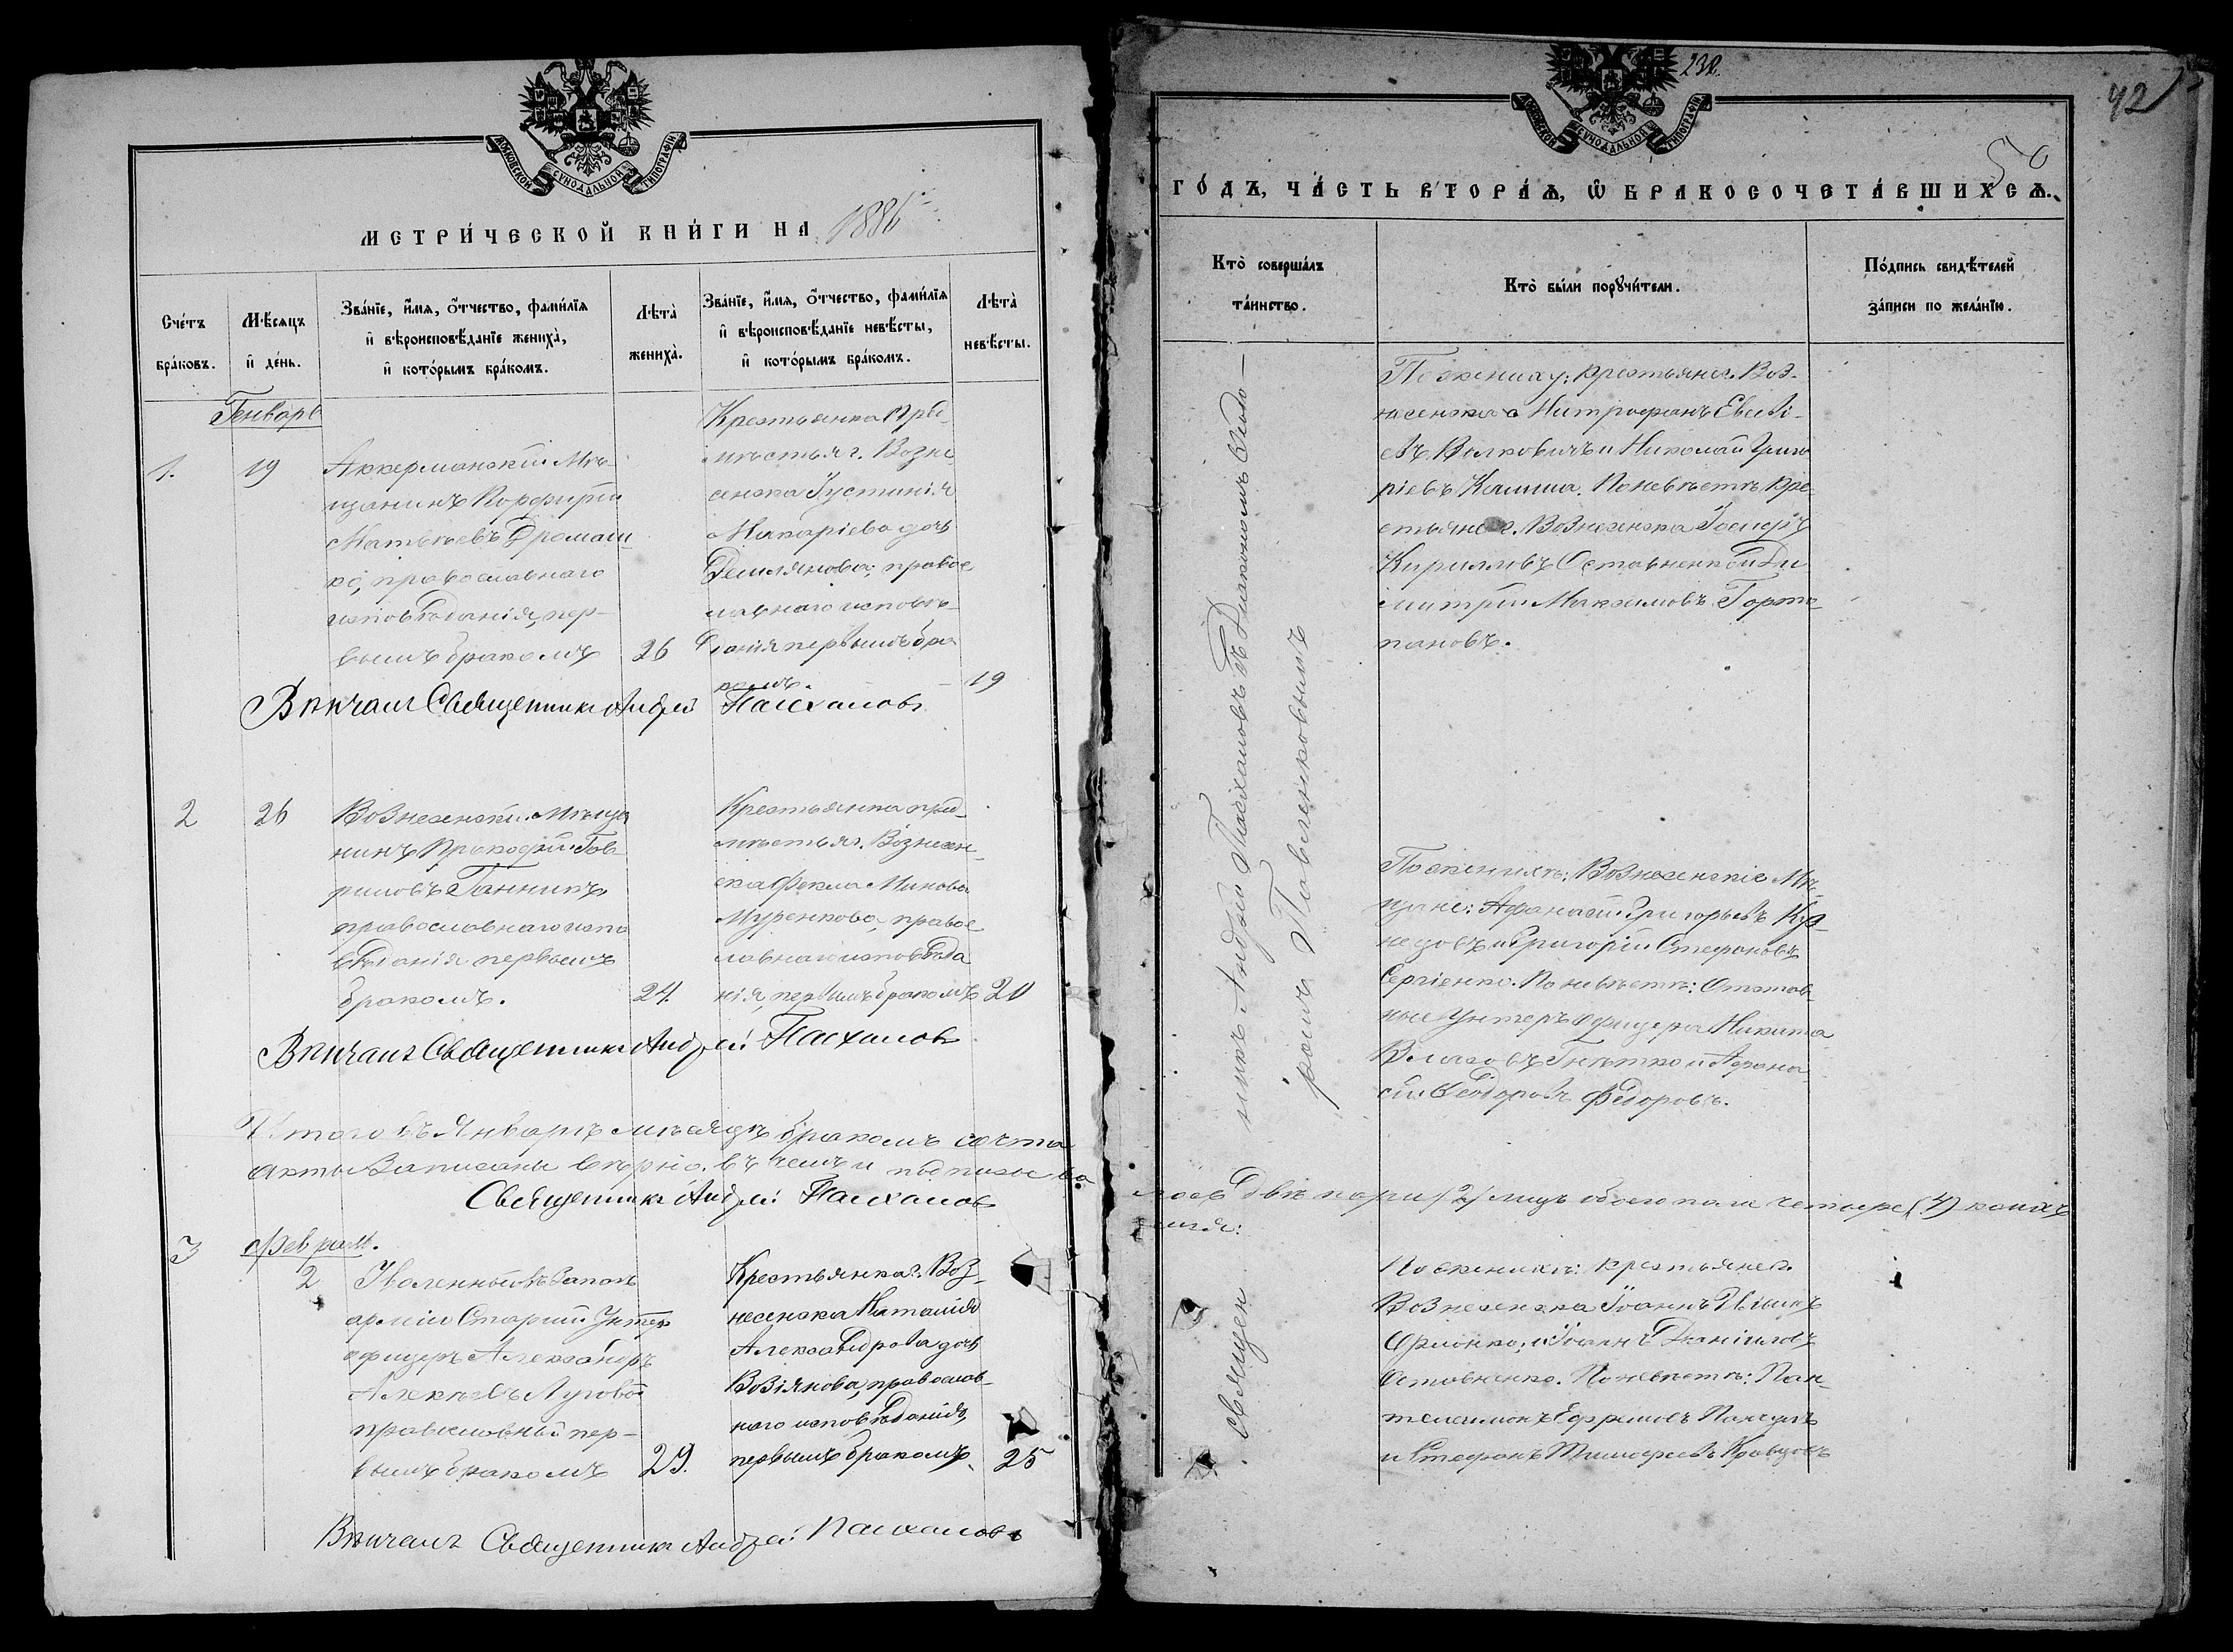 МОСКОВСКОЙ СУНОДАЛЬНОЙ ТИПОГРАФІИ
МЕТРИ́ЧЕСКОЙ КНИ́ГИ НА 1886
Счётъ бра́ковъ.
Мѣ́сяцъ и҆ де́нь.
Зва́нїе, и҆́мя, ѻ҆́тчество, фами́лїя
и҆ вѣроисповѣ́данїе жениха̀,
и҆ кото́рымъ бра́комъ.
Лѣта̀ жениха̀.
Зва́нїе, и҆́мя, ѻ҆́тчество, фами́лїя
и҆ вѣроисповѣ́данїе невѣ́сты,
и҆ кото́рымъ бра́комъ.
Лѣта̀ невѣ́сты.
Генварь
1.
19
Аккерманскій Мѣ-
щанинъ Порфирій
Матѣевъ
православнаго
исповѣданія, пер-
вымъ бракомъ
26
Крестьянка Пред-
мѣстья г. Возне
сенска Іустинія
Макаріева дочь
Демьянова, правос
лавнаго исповѣ-
данія первымъ бра
комъ.
19
Вѣнчалъ Священникъ Андрей Пасхаловъ
2
26
Вознесенскій Мѣща
нинъ Прокофій Гав
риловъ Ганникъ
православнаго испо
вѣданія первымъ
бракомъ.
24.
Крестьянка пред-
мѣстья г. Вознесен-
ска Фекла Минова
Муренкова, правос
лавнаго исповѣда
нія, первымъ бракомъ
21
Вѣнчалъ Священникъ Андрей Пасхаловъ
Итого въ Январѣ мѣсяцѣ бракомъ сочета
акты записаны вѣрно, въ чемъ и подписы ва
Священникъ Андрей Пасхаловъ
3
Февраль.
2
Уволенный въ запасъ
арміи Старшій Унтеръ
офицеръ Александръ
Алексѣевъ Луговой
православный пер-
вымъ бракомъ
29.
Крестьянка г. Воз-
несенска Наталія
Александрова дочь
Возіянова, православ-
наго исповѣданія,
первымъ бракомъ.
25
Вѣнчалъ Священникъ Андрей Пасхаловъ
230.
42
МОСКОВСКОЙ СУНОДАЛЬНОЙ ТИПОГРАФІИ
50
ГО́ДЪ, ЧА́СТЬ ВТОРА́Ѧ, Ѡ҆ БРАКОСОЧЕТА́ВШИХСѦ.
Кто̀ соверша́лъ
та́инство.
Кто̀ бы́ли порꙋчи́тели.
По́дпись свидѣ́телей
за́писи по жела́нїю.
Священ
никъ Андрей Пасхаловъ съ Діакономъ Ѳеодо-
ромъ Павленковымъ
По жениху: крестьяне г. Воз-
несенска Митрофанъ Евсеві-
евъ Волковичъ и Николай Григо
ріевъ Калина. По невѣстѣ кре
стьяне г. Вознесенска Іосифъ
Кирилловъ Оставненко и Ди
митрій Максимовъ Горта
пановъ.
По женихѣ: Вознесенскіе Мѣ-
щане: Афанасій Григорьевъ Куз-
нецовъ и Григорій Стефановъ
Сергіенко. По невѣстѣ: Отстав-
ные Унтеръ офицера Никита
Власовъ Гнѣтко и Афана
сій Ѳеодоровъ Федоровъ.
лось Двѣ пары /2/ лицъ обоего пола четыре (4) коихъ
емся:
По женихѣ: крестьяне г.
Вознесенска Іоаннъ
и Іоаннъ Даніиловъ
Оставненко. По невѣстѣ: Пан-
телеимонъ Ефремовъ
и Стефанъ Тимофеевъ Кравцовъ